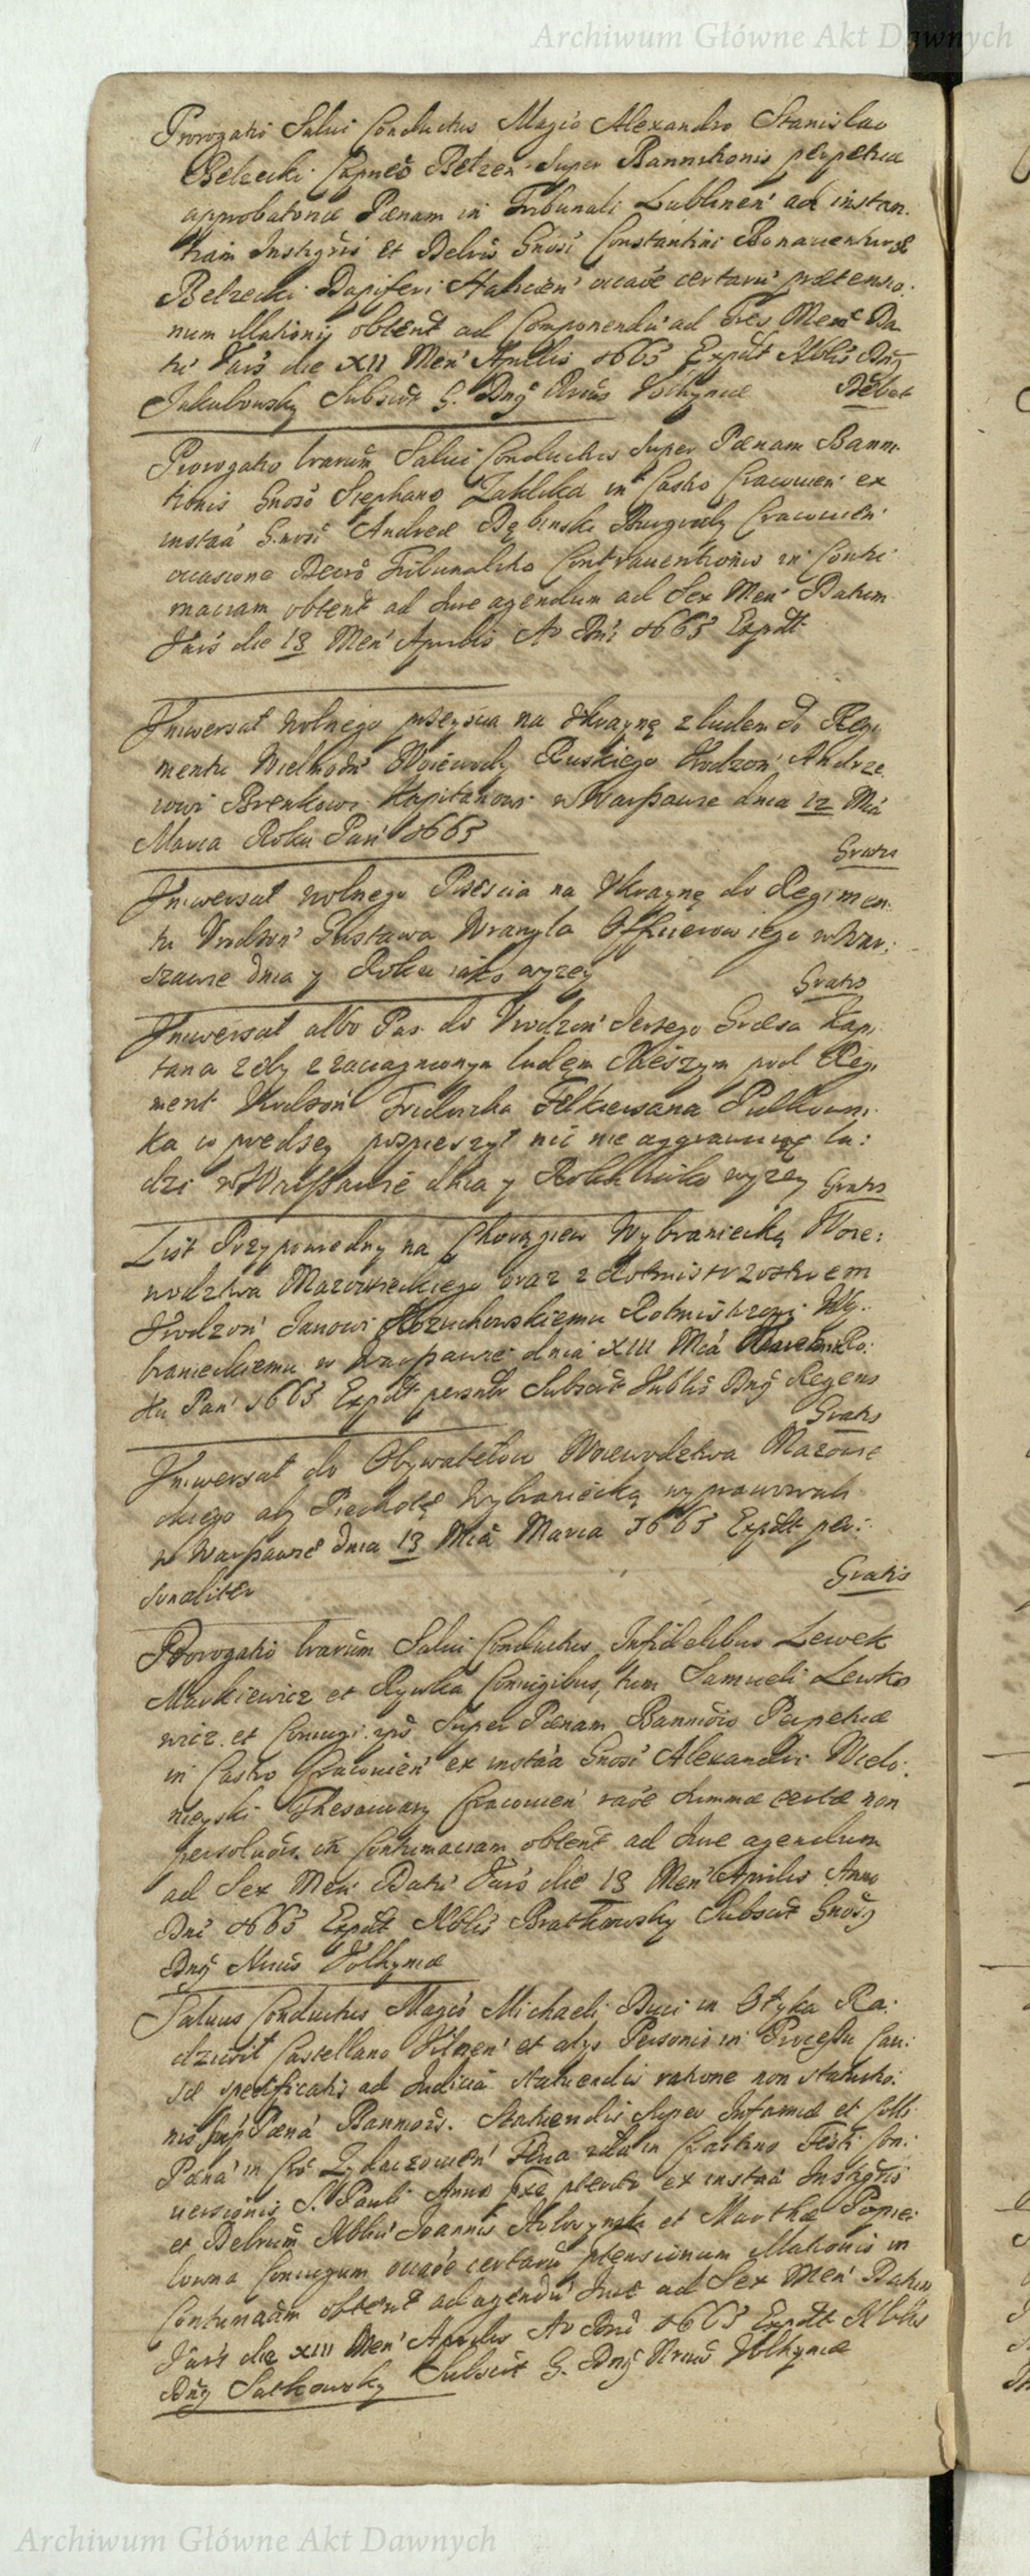 Archiwum Główne Akt Dawnych
Prorogatio Salvi Conductus Magco Alexandro Stanislao
Belzecki Capneo Belzen Super Bannitionis perpetuæ
approbatoriæ Pœnam in Tribunali Lublinen ad instan.
tiam Instigris et Delris Gnosi Constantini Bonauenturæ
Belzecki Dapiferi Halicien occaōe certaru prætensio:
num Mationis obtent ad Componendū ad Tres Mens Da
tū Vars die XII Men Aprilis 1663 Expdt Nblis Dng
Jakubowsky Subscrt G. Dng Rnus Volhyniæ Debet
Prorogatio lrarum Salui Conductus Super Pœnam Banni
tionis Gnoso Stephano Zaklika in Castro Cracouien ex
instaā Gnosi Andreæ Dębinski Burgraby Cracouien
occasione Decro Tribunalitio Contrauentionis in Contu
maciam obtent ad Jure agendum ad Sex Men Datum
Vars die 13 Men Aprilis Ao Dni 1663 Expdt
Vniwersał wolnego przeyscia na Ukrainę z ludem do Regi
mentu Wielmożn Woiewody Ruskiego Urodzon Andrze
iowi Brenkowi Kapitanowi w Warszawie dnia 12 Mca
Marca Roku Pan 1663
Gratis
Vniwersał wolnego Przescia na Ukrainę do Regimen
tu Urodzon Gustawa Wrangla Officierowi iego w War:
szawie dnia y Roku iako wyzey Gratis
Vniwersał albo Pas do Urodzon Jerzego Kapi
tana zeby z zaciągnionym ludem Pieszym pod Regi
ment Urodzon Fridricha Felkierzana Pułkowni
ka co prędzey pospieszył nic nie aggrawuiąc lu:
dzi w Warszawie dnia y Roku iako wyzey Gratis
List Przypowiedny na Chorągiew Wybraniecką Woie:
wodztwa Mazowieckiego oraz z Rotmistrzostwem
Urodzon Janowi Rotmistrzowi Wy:
branieckiemu w Warszawie dnia XIII Mca Ro:
ku Pan 1663 Expdt personlr Subscrt Nblis Dng Regens
Gratis
Vniwersał do Obywatelow Woiewodztwa Mazowie
ckiego aby Piechotę Wybraniecką wyprawowali
w Warszawie dnia 13 Mca Marca 1663 Expdt per:
sonaliter Gratis
Prorogatio lrarum Salui Conductus Infidelibus Lewek
Markiewicz et Rywka Coniugibus, tum Samueli Lewko
wicz et Coniugi ips Super Pœnam Bannios Perpetuæ
in Castro Cracouien ex instaā Gnosi Alexandri Wielo:
nieyski Thesaurary Cracouien raōe Summæ certæ non
persolutæ in Contumaciam obtent ad Jure agendum
ad Sex Men Datū Vars die 13 Men Aprilis Anno
Dni 1663 Expdt Nblis Bratkowsky Subscrt Gnosg
Dng Rnus Volhyniæ
Saluus Conductus Magco Michaeli Duci in Olyka Ra:
dziwił Castellano Vilnen et alys Personis in Processu Cau:
sæ specificatis ad Judicia Statuendis ratione non statutio:
nis Sup Pœna Bannios. Statuendis Super Infamiæ et Colli
Pœna in Zydaczowien Feria in Crastino Festi Con:
uersionis S. Pauli Anno ex instaā Instigris
et Delrum Nblium Joannis et Marthæ Popie:
lowna Coniugum occaōe certaru ptensionum Mationis in
Contumacm obtent ad agendū Jure ad Sex Men Datum
Vars die XIII Men Aprilis Ao Dni 1663 Expdt Nblis
Dng Sutkowsky Subscrt G. Dng Rnus Volhyniæ
Archiwum Główne Akt Dawnych